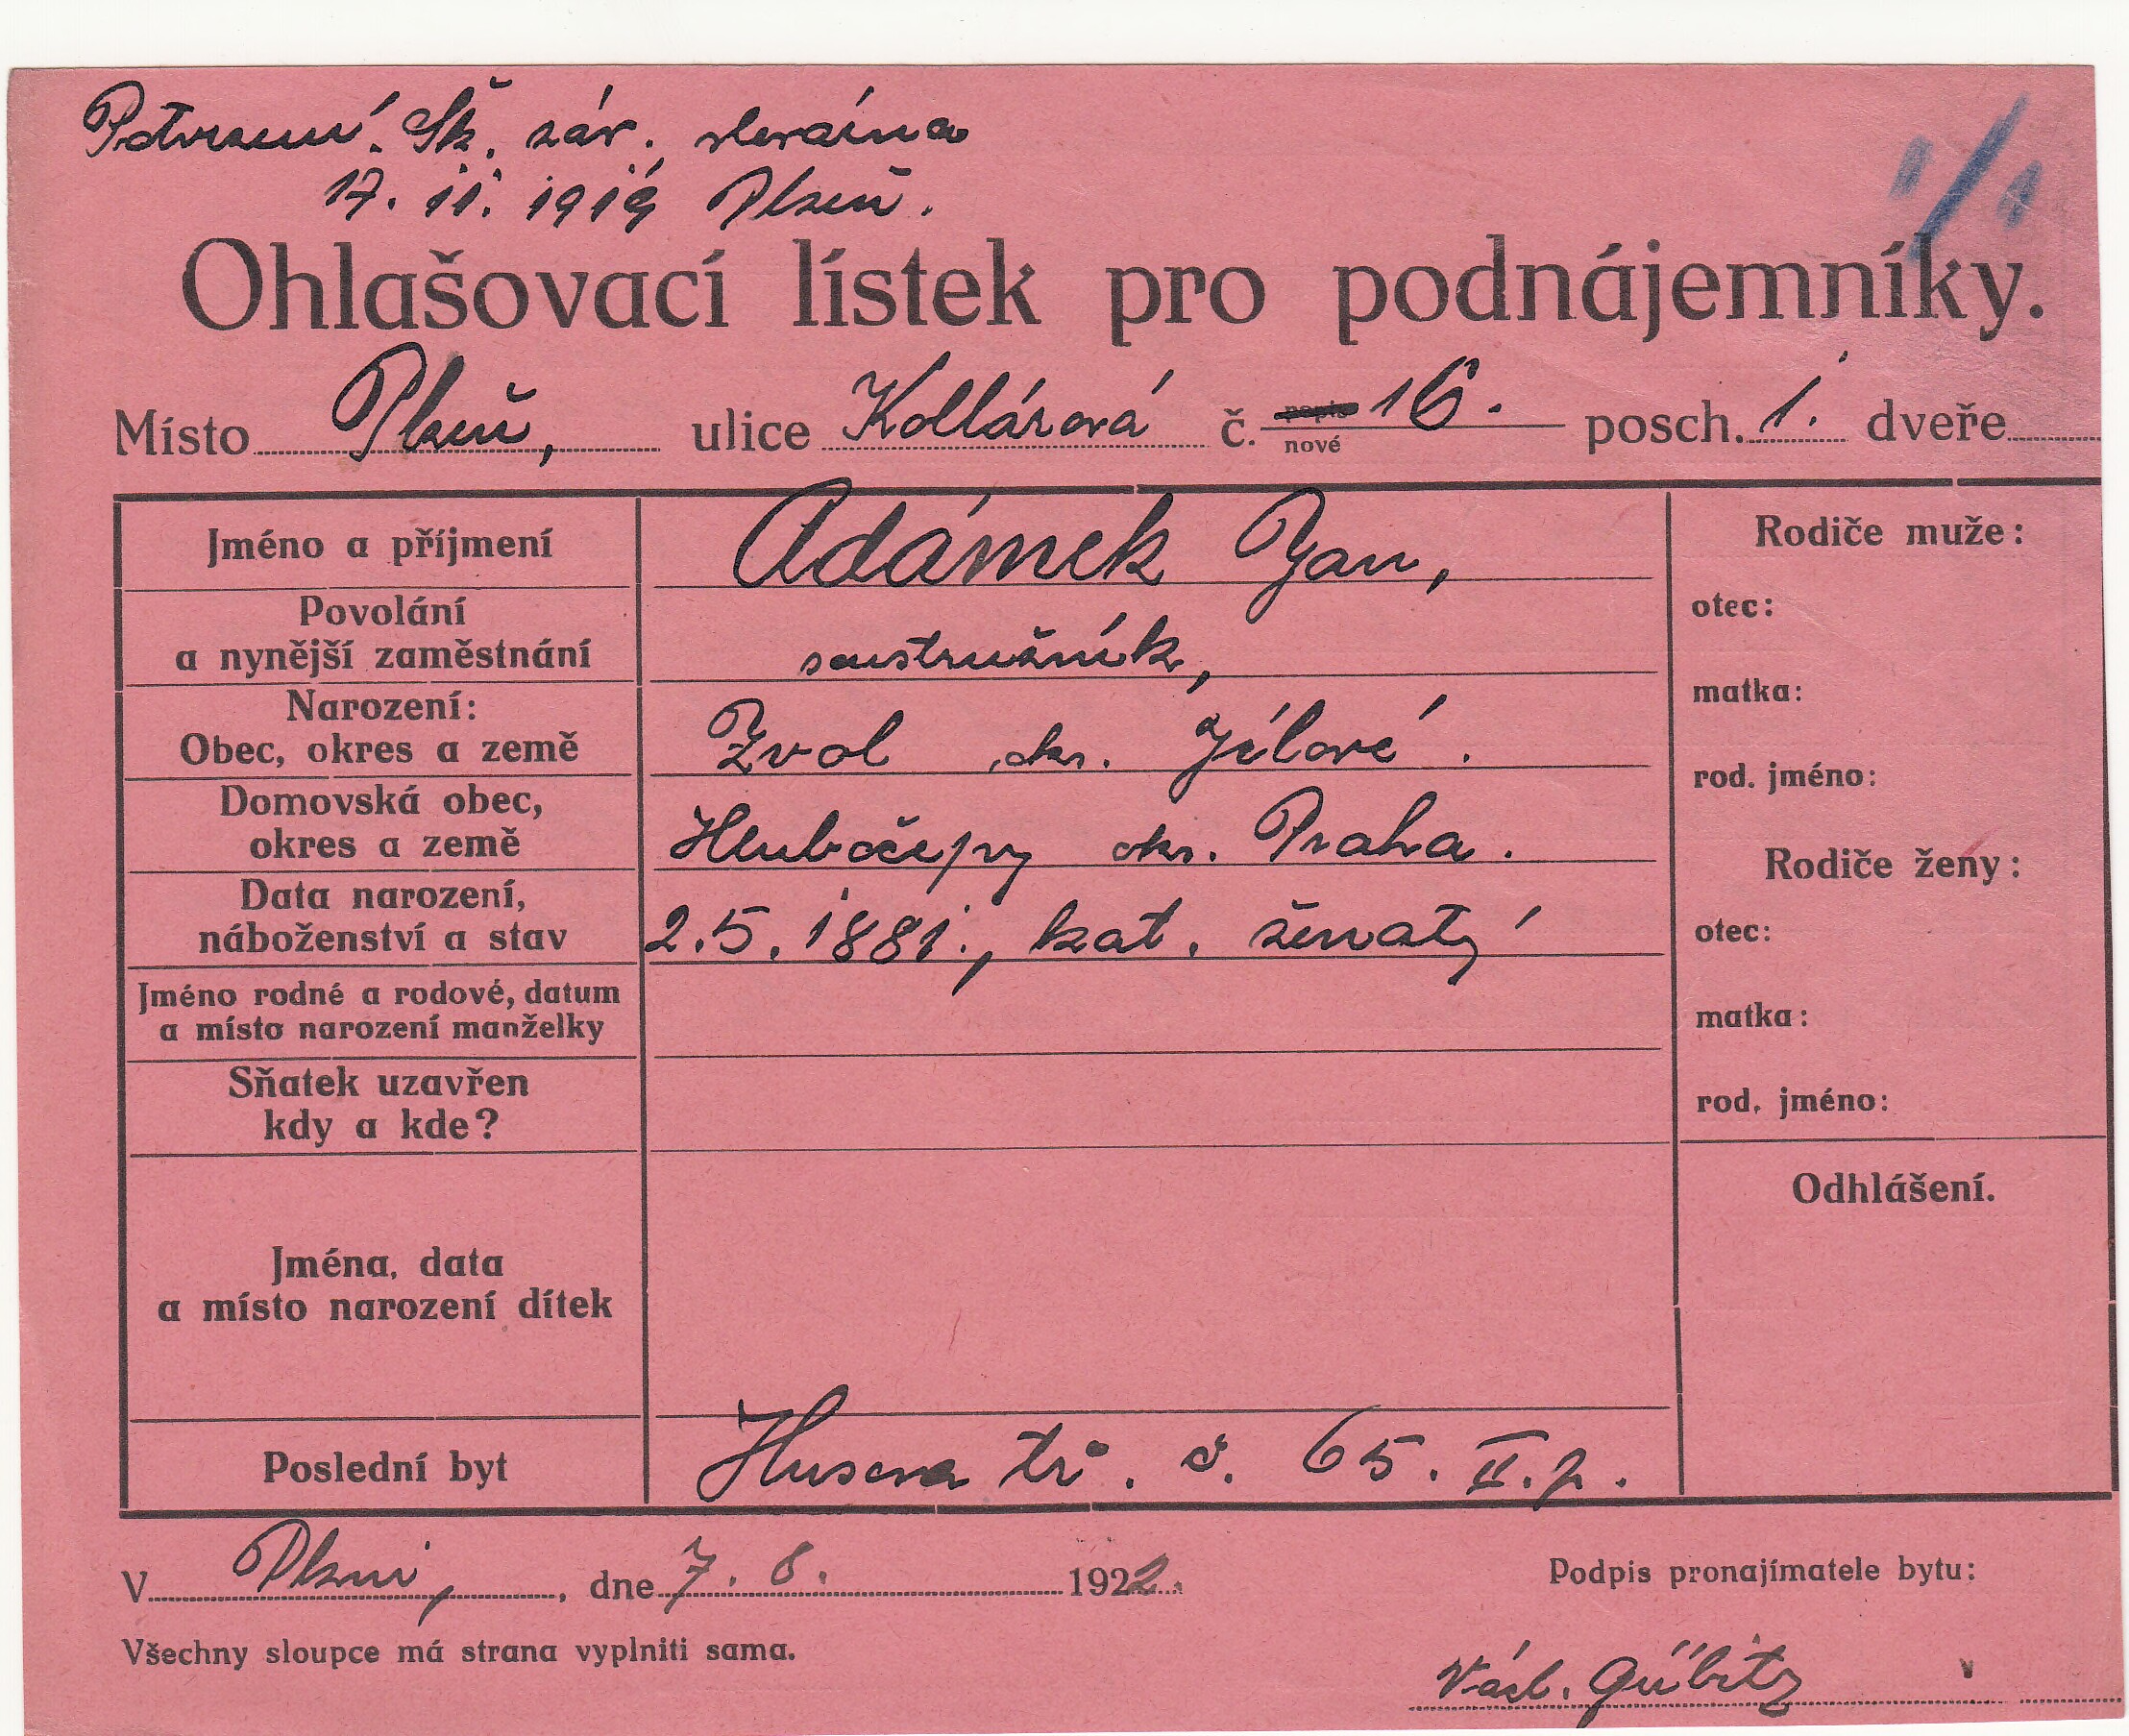 Potvrzení. Šk. záv. slevárna
17. 11. 1919 Plzeň.
1/1
Ohlašovací lístek pro podnájemníky.
Místo Plzeň, ulice Kollárová č. popis. nové 16. posch. 1. dveře
Jméno a příjmení Adámek Jan,
Povolání
a nynější zaměstnání soustružník,
Narození:
Obec, okres a země Zvol okr. Jílové.
Domovská obec,
okres a země Hlubočepy okr. Praha.
Data narození,
náboženství a stav 2. 5. 1881., kat. ženatý
Jméno rodné a rodové, datum
a místo narození manželky
Sňatek uzavřen
kdy a kde?
Jména, data
a místo narození dítek
Poslední byt Husova tř. č. 65. II. p.
Rodiče muže:
otec:
matka:
rod. jméno:
Rodiče ženy:
otec:
matka:
rod. jméno:
Odhlášení.
V Plzni, dne 7. 8. 1922.
Podpis pronajímatele bytu:
Všechny sloupce má strana vyplniti sama.
Václ. Gübitz